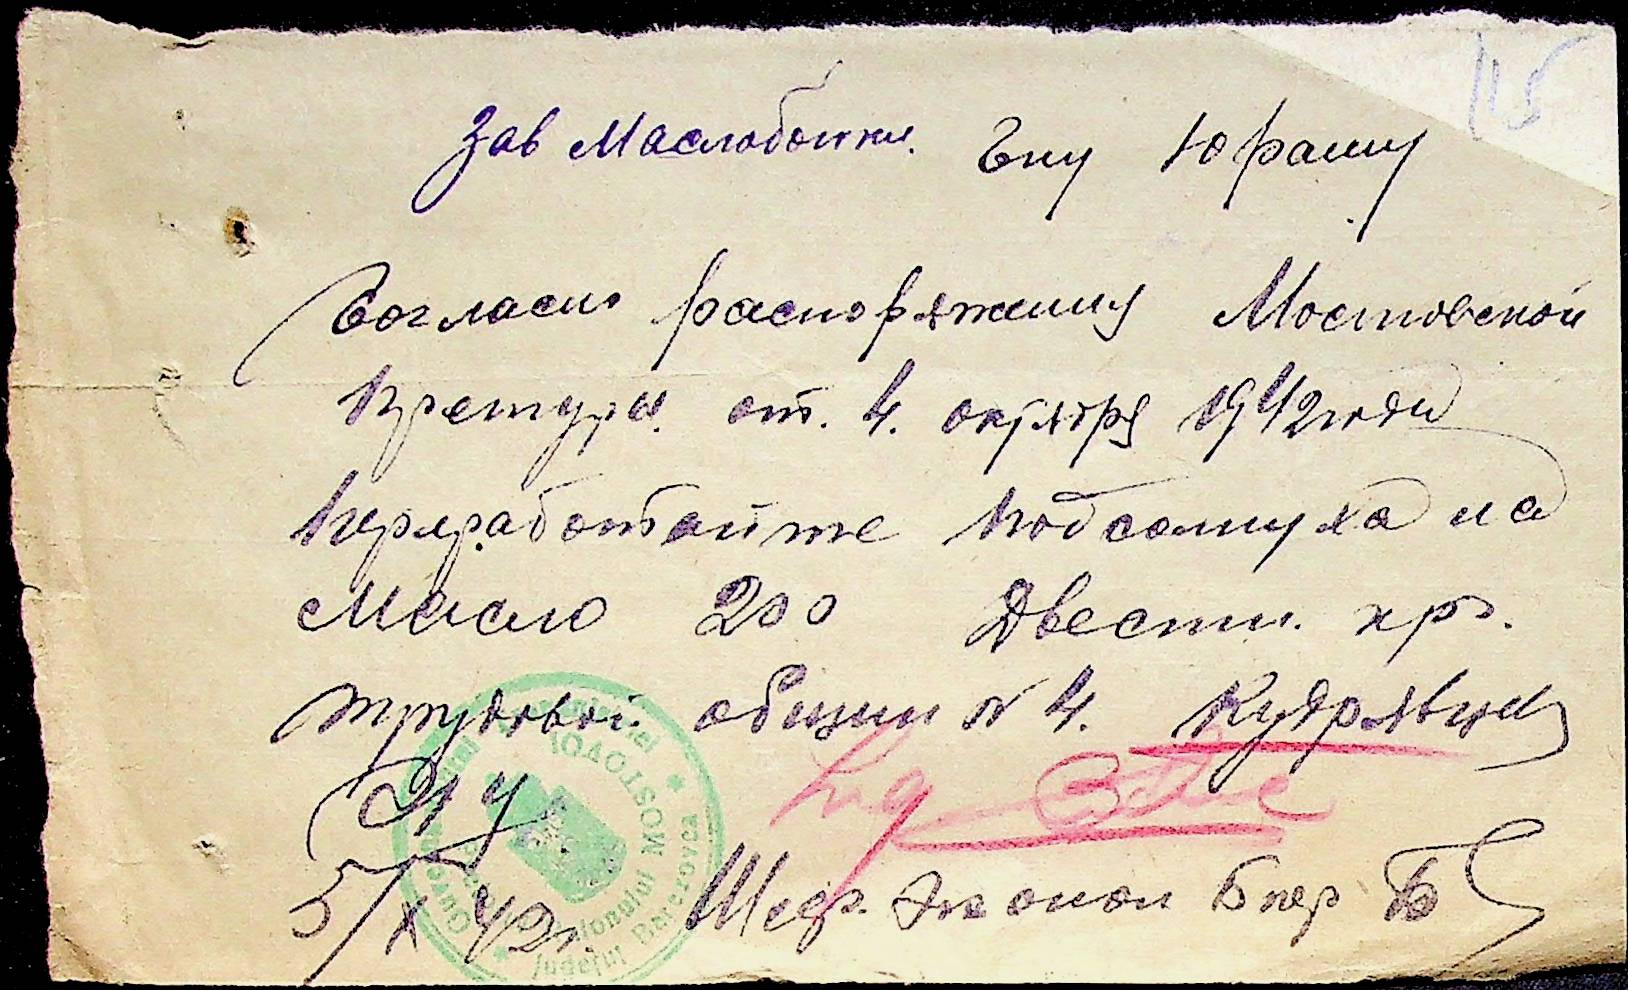 115
Зав Маслобойки. Г-ну Юрашу
Согласно распоряжению Мостовской
Претуры от 4. октября 1942 года
Переработайте Подсолнуха на
Масло 200 Двести кгр.
трудовой общин N 4. Кудрявцев
5/X 42г. Шеф. Эконом Бюр
MOSTOVOI
Raionului
Judeţul Berezovca